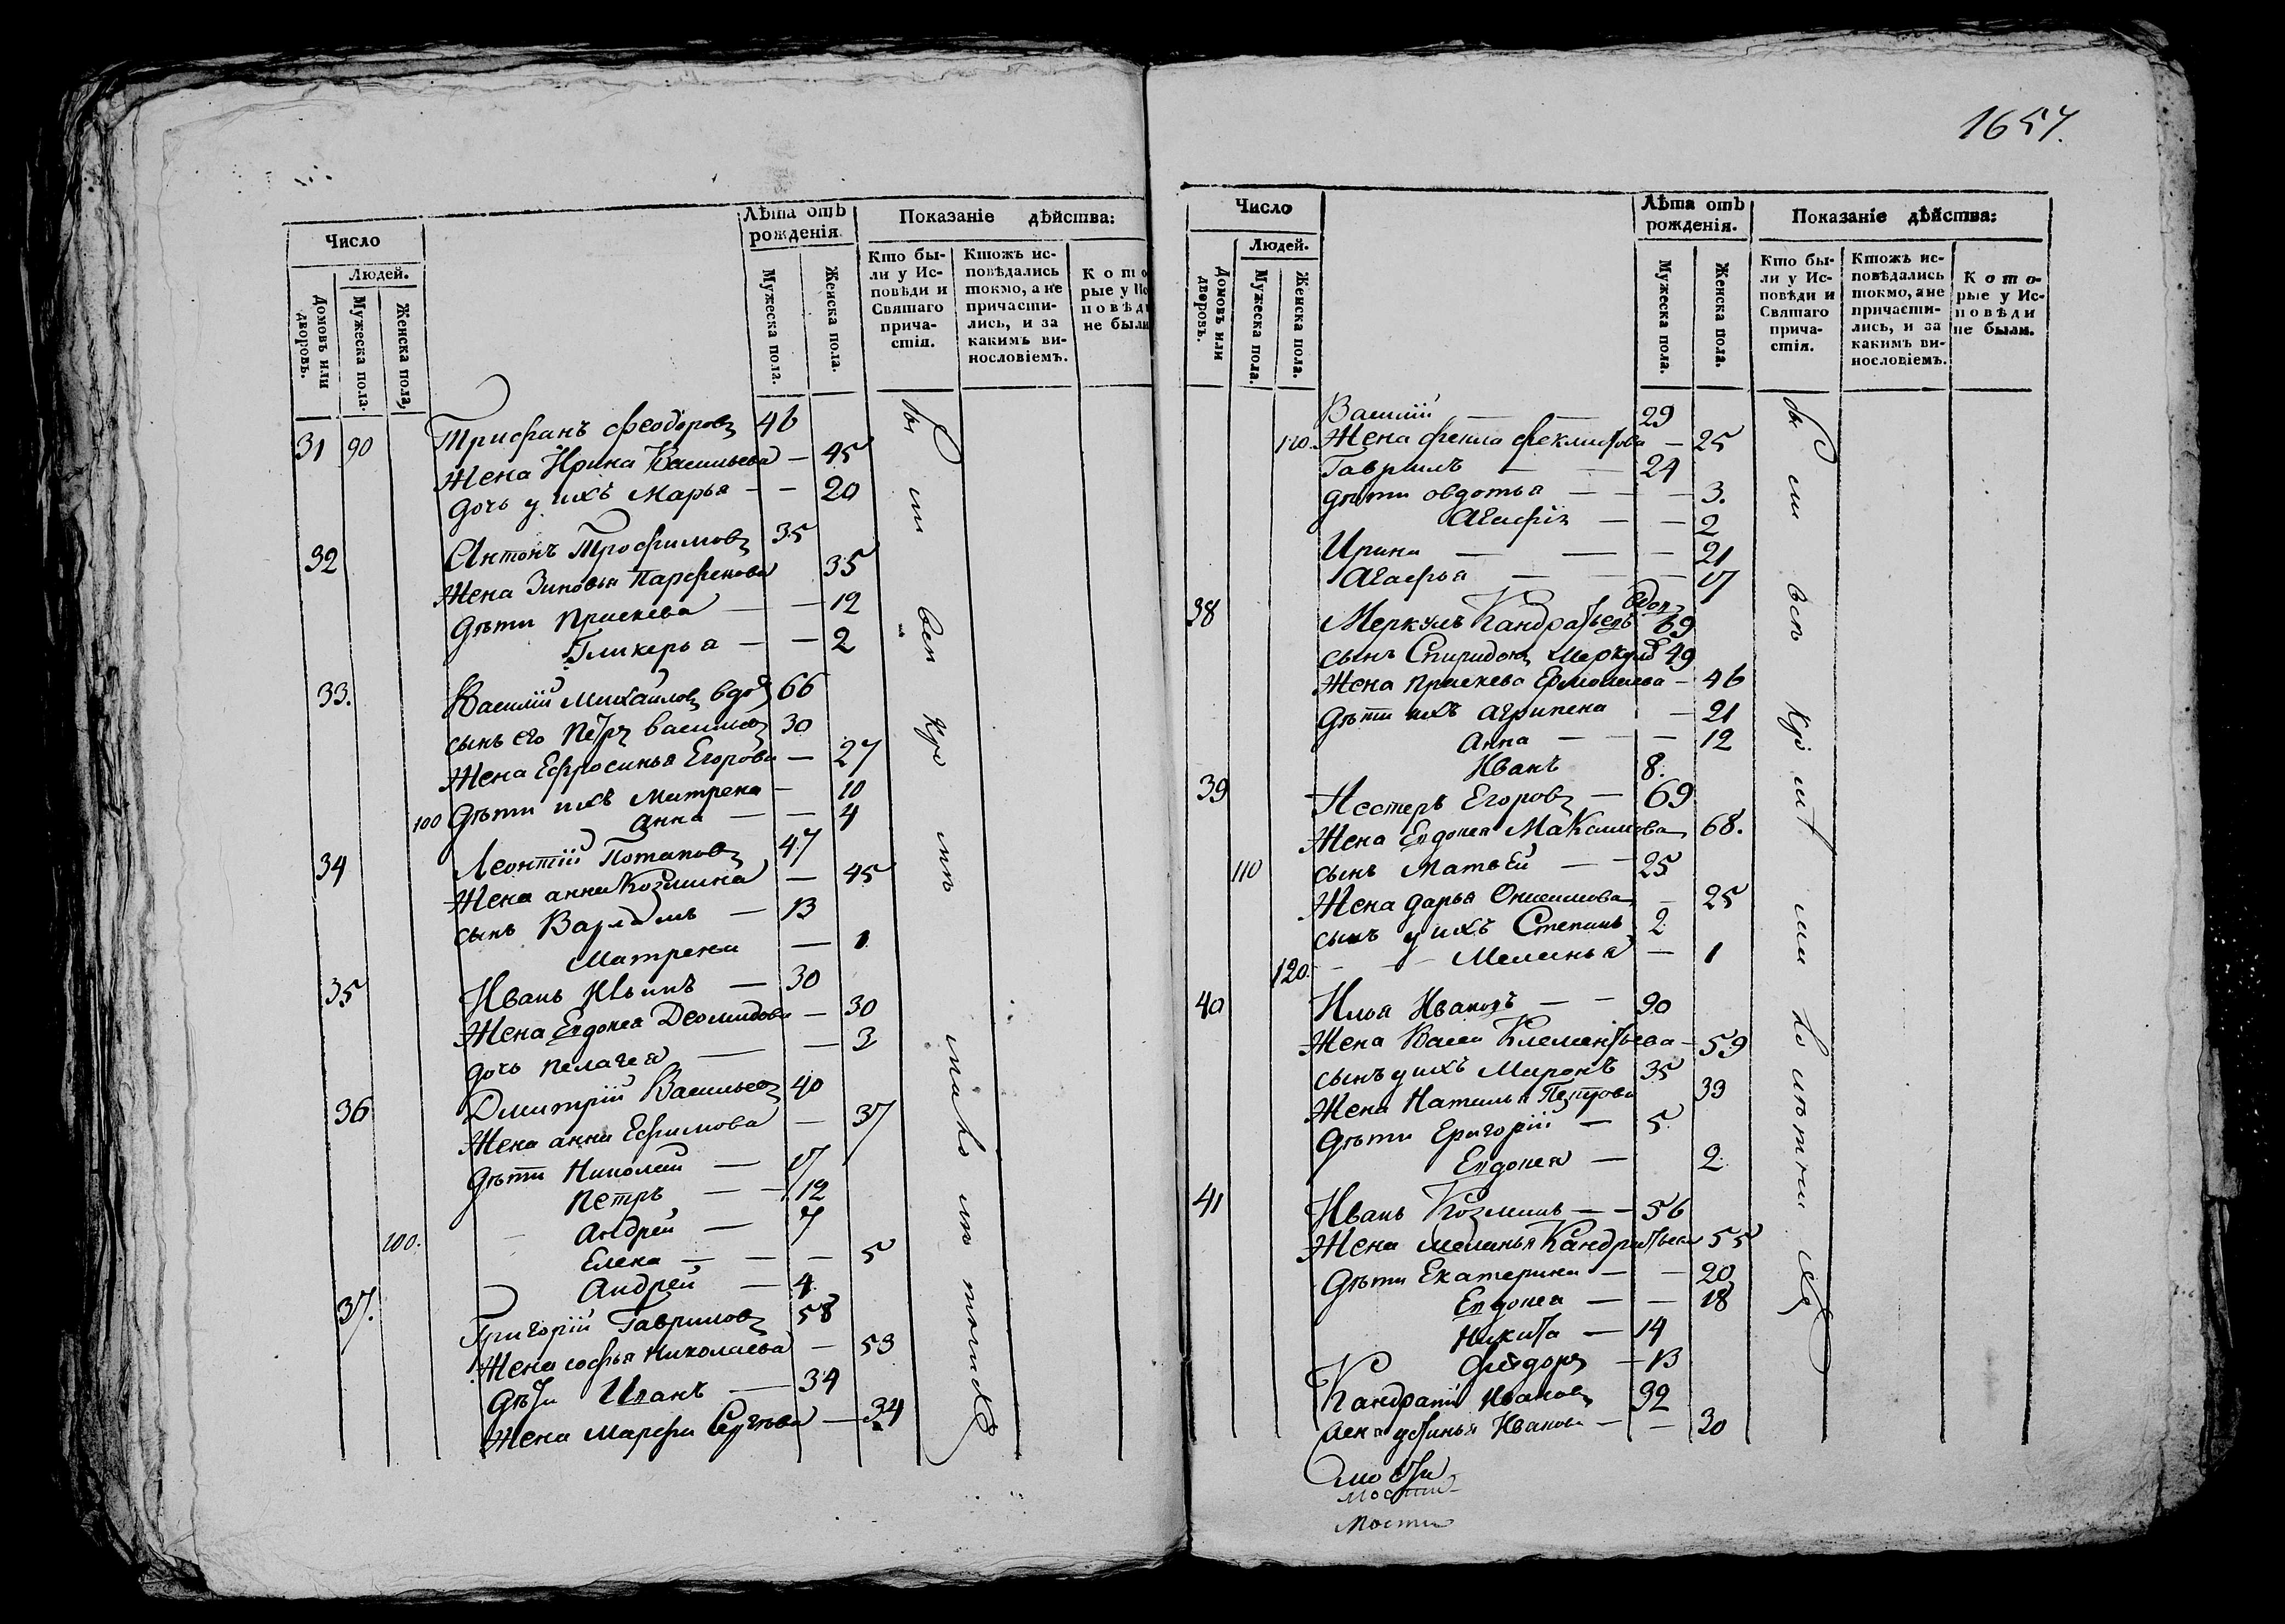 Число
Людей.
Домовъ или дворовъ.
Мужеска пола.
Женска пола,
Лѣта отъ рожденія.
Мужеска пола.
Женска пола.
Показаніе дѣйства:
Кто бы-
ли у Ис-
повѣди и
Святаго
прича-
стія.
Ктожъ ис-
повѣдались
токмо, а не
причасти-
лись, и за
какимъ ви-
нословіемъ.
Кото
рые у Ис
повѣди
не были
31 90 Трифанъ Феодоровъ 46
Жена Ирина Васильева — 45
дочь у ихъ Марья — — 20
32 Антонъ Трофимовъ 35
Жена Зиновья Парфенова 35
дѣти Праскева — — 12
Гликерья — — 2
33. Василій Михайловъ вдов 66
сынъ его Петръ Васильевъ 30
Жена Ефросинья Егорова — 27
100 дѣти ихъ Матрена — 10
Анна — — 4
34 Леонтій Потаповъ 47
Жена анна Козмина — 45
сынъ Варламъ — 13
Матрена — 1
35 Иванъ Ильинъ — 30
Жена Евдокея Деомидова — 30
дочь пелагея — — 3
36 Дмитрій Васильевъ 40
Жена анна Ефимова — 37
дѣти Николай — 17
Петръ — — 12
Андрей — 7
100. Елена — — — 5
Андрей — 4
37. Григорій Гавриловъ 58
Жена софья Николаева — 53
дѣти Иванъ — 34
Жена Марфа Сергѣева — 34
1657.
Число
Людей.
Домовъ или дворовъ.
Мужеска пола.
Женска пола.
Лѣта отъ рожденія.
Мужеска пола.
Женска пола.
Показаніе дѣйства:
Кто бы-
ли у Ис-
повѣди и
Святаго
прича-
стія.
Ктожъ ис-
повѣдались
токмо, а не
причасти-
лись, и за
какимъ ви-
нословіемъ.
Кото-
рые у Ис-
повѣди
не были.
Василій — — 29
110. Жена фекла феклистова — 25
Гаврилъ — — 24
дѣти овдотья — — — 3.
Агафія — — 2
Ирина — — — 21
Агафья — — — 17
38 Меркулъ Кандратьевъ вдов 69
сынъ Спиридонъ Меркул 49
Жена праскева Ермолаева — 46
дѣти ихъ агрипена — 21
Анна — — — 12
Иванъ 8.
39 Нестеръ Егоровъ — 69
Жена Евдокея Максимова 68.
110 сынъ Матвѣй — — 25
Жена дарья Онисимова — 25
сынъ у ихъ Степанъ 2
120. Меланья — 1
40 Илья Ивановъ — — 90
Жена Васса Клементьева — 59
сынъ у ихъ Миронъ 35
Жена Наталья Петрова 33
дѣти Григорій — 5
Евдокея — 2
41 Иванъ Козминъ — — 56
Жена меланья Кандратьева 55
дѣти Екатерина — — 20
Евдокея — — 18
Никита — 14
Фёдоръ — 13
Кандратій Ивановъ 32
Иванова — — 30
мости
мости